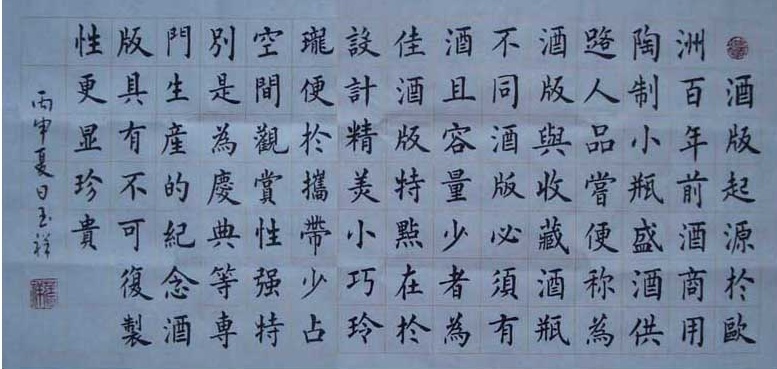 酒版起源於歐
洲百年前酒商用
陶制小瓶盛酒供
路人品嘗便称為
酒版與收藏酒瓶
不同酒版必須有
酒且容量少者為
佳酒版特點在於
設計精美小巧玲
瓏便於攜帶少占
空間觀賞性强特
別是為慶典等專
門生産的紀念酒
版具有不可復製
性更显珍貴
丙申夏日玉祥